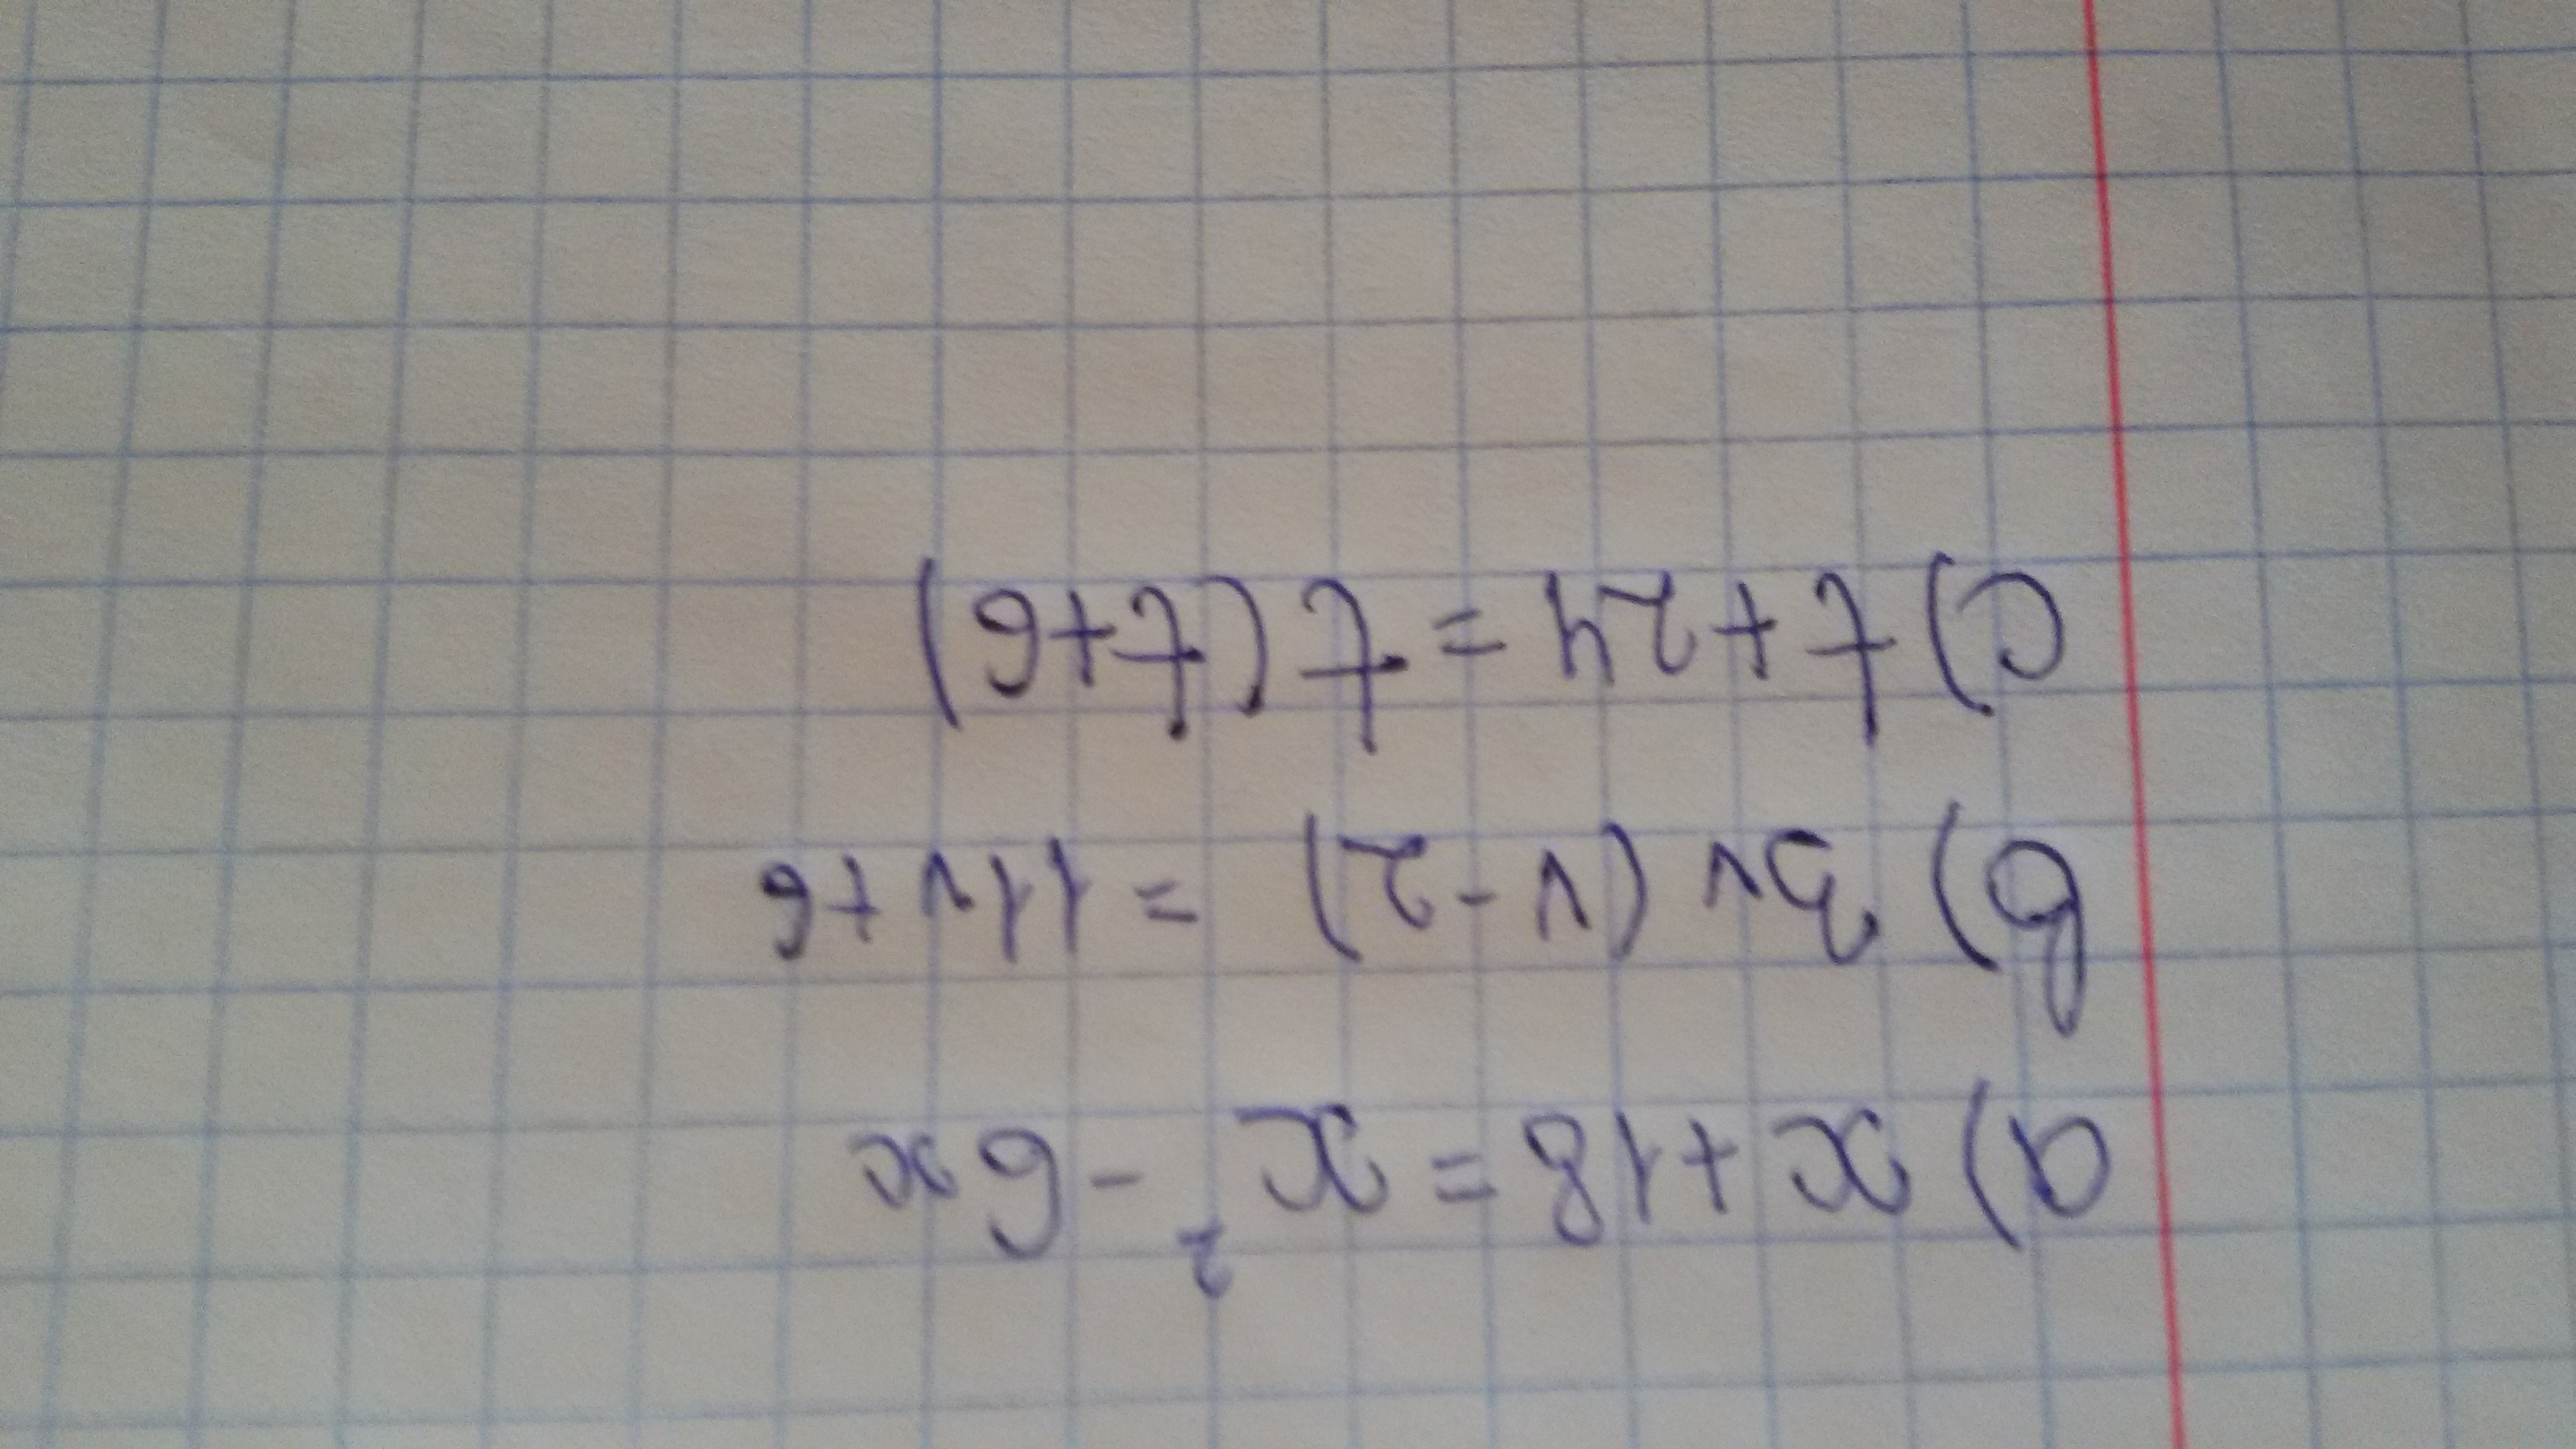 a) x + 18 = x² - 6x
b) 3v (v - 2) = 11v + 6
c) t + 24 = t (t + 6)